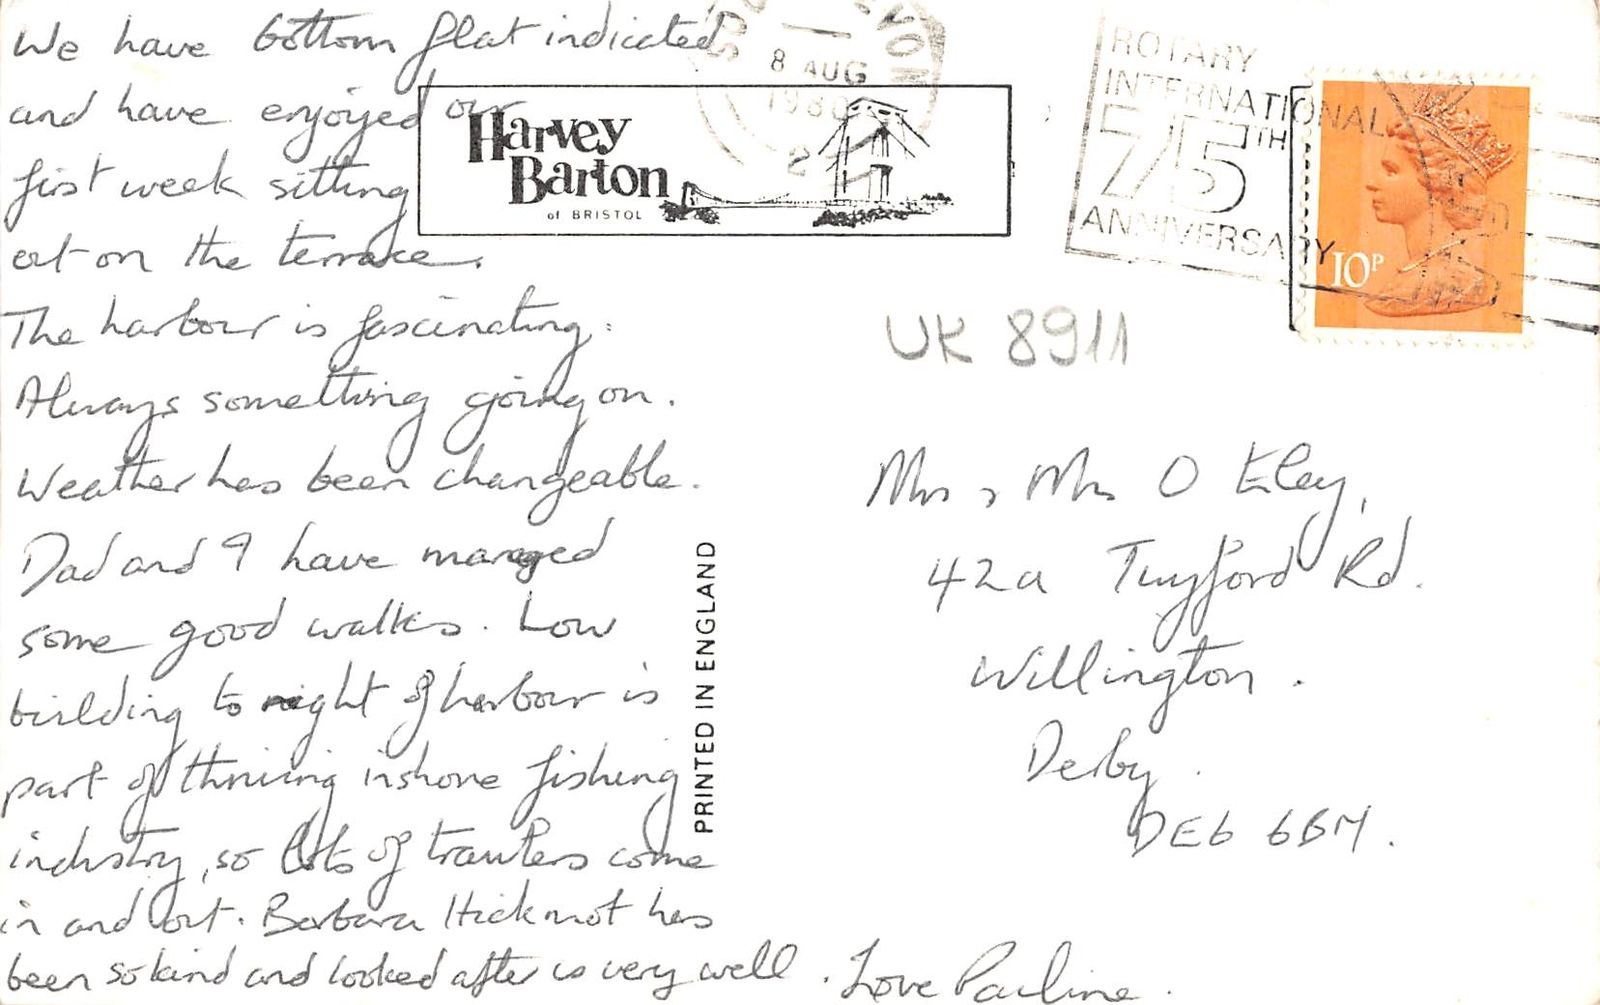 We have bottom flat indicated
and have enjoyed our
first week sitting
out on the terrace.
The harbour is fascinating:
Always something going on.
Weather has been changeable.
Dad and I have managed
some good walks. Low
building to right of harbour is
part of thriving inshore fishing
industry, so lots of trawlers come
in and out. Barbara Hickmot has
been so kind and looked after us very well. Love Pauline.
Harvey
Barton
of BRISTOL
PRINTED IN ENGLAND
DEVON
8 AUG
1980
ROTARY
INTERNATIONAL
75TH
ANNIVERSARY
10P
UK 8911
Mr & Mrs O Eley,
42a Twyford Rd.
Willington.
Derby.
DE6 6BM.